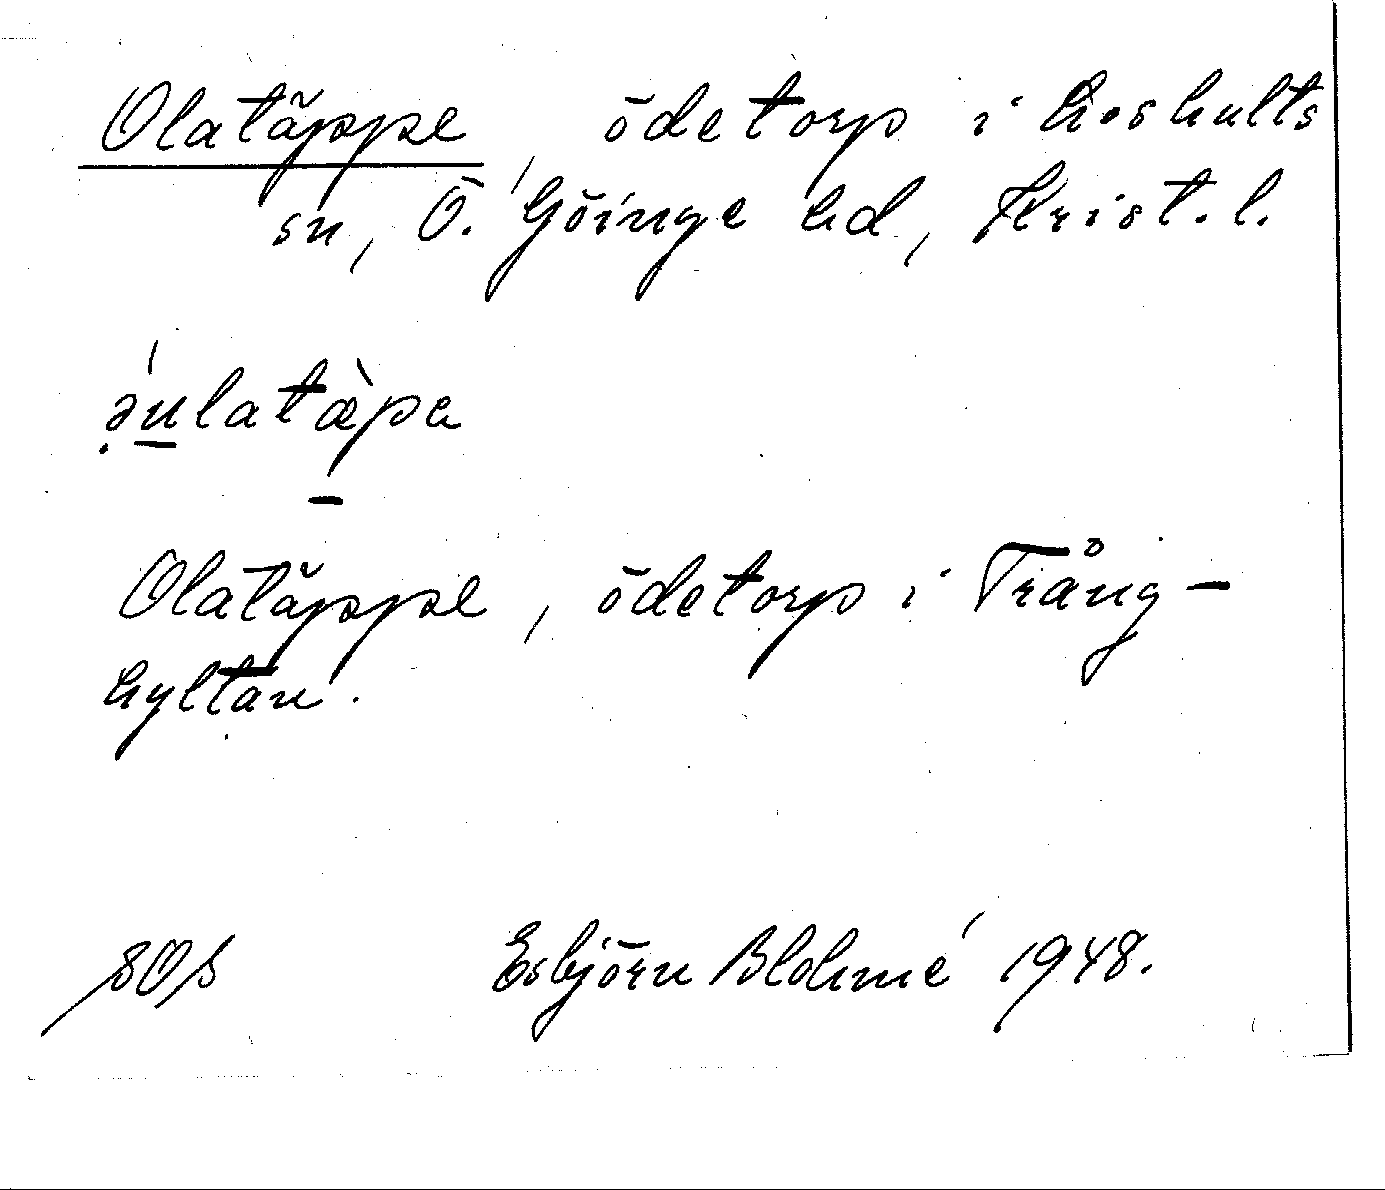 Olatäppe, ödetorp i Hishults
sn, Ö. Göinge hd, Krist. l.
ə́ulatæ̀pa
Olatäppe, ödetorp i Trång-
hyltan.
SOS Esbjörn Blohmé 1948.